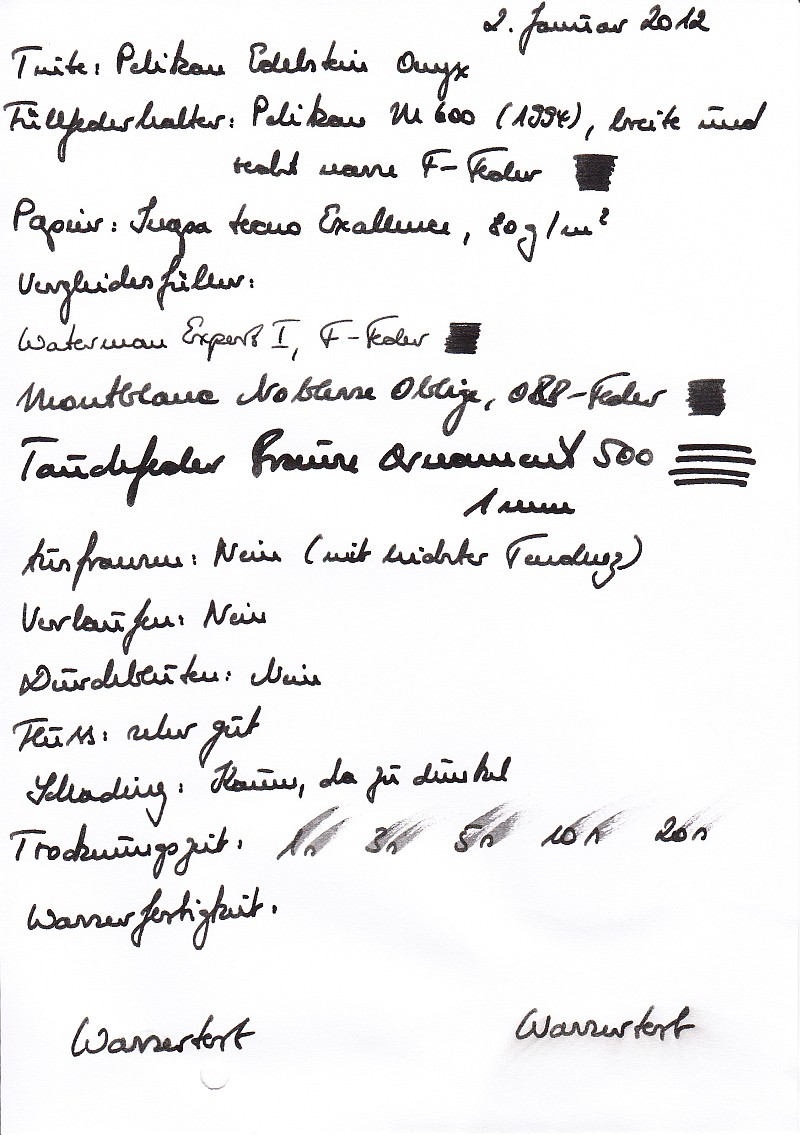 2. Januar 2012
Tinte: Pelikan Edelstein Onyx
Füllfederhalter: Pelikan M 600 (1994), breite und
recht nasse F-Feder
Papier: Inapa tecno Excellence, 80g/m²
Vergleichsfüller:
Waterman Expert I, F-Feder
Montblanc Noblesse Oblige, OBB-Feder
Tauchfeder Brause Ornament 500
1 mm
Ausfransen: Nein (mit leichter Tendenz)
Verlaufen: Nein
Durchbluten: Nein
Fluss: sehr gut
Schading: Kaum, da zu dunkel
Trocknungszeit: 1s 3s 5s 10s 20s
Wasserfestigkeit:
Wassertest Wassertest